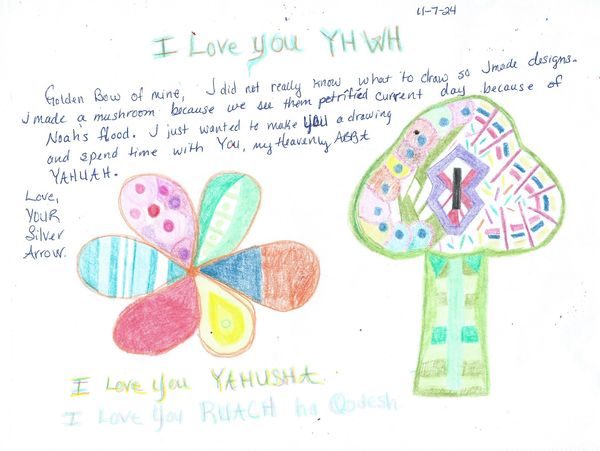 11-7-24
I Love you YHWH
Golden Bow of mine, I did not really know what to draw so I made designs.
I made a mushroom because we see them petrified current day because of
Noah's flood. I just wanted to make YOU a drawing
and spend time with YOU, my Heavenly ABBA
YAHUAH.
Love,
YOUR
Silver
Arrow.
I Love you YAHUSHA
I Love you RUACH ha Qodesh